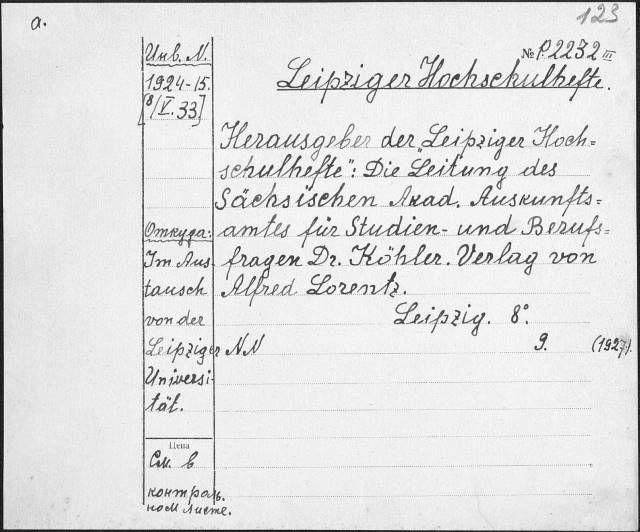 a.
123
№ P.2232 III
Leipziger Hochschulhefte.
Инв. N.
1924-15.
[8/V.33]
Herausgeber der „Leipziger Hoch=
schulhefte": Die Leitung des
Sächsischen Akad. Auskunfts=
amtes für Studien- und Berufs=
fragen Dr. Köhler. Verlag von
Alfred Lorentz.
Leipzig. 8°.
NN 9. (1927).
Откуда:
Im Aus-
tausch
von der
Leipziger
Universi-
tät.
Цена
См. в
контроль.
ном листе.